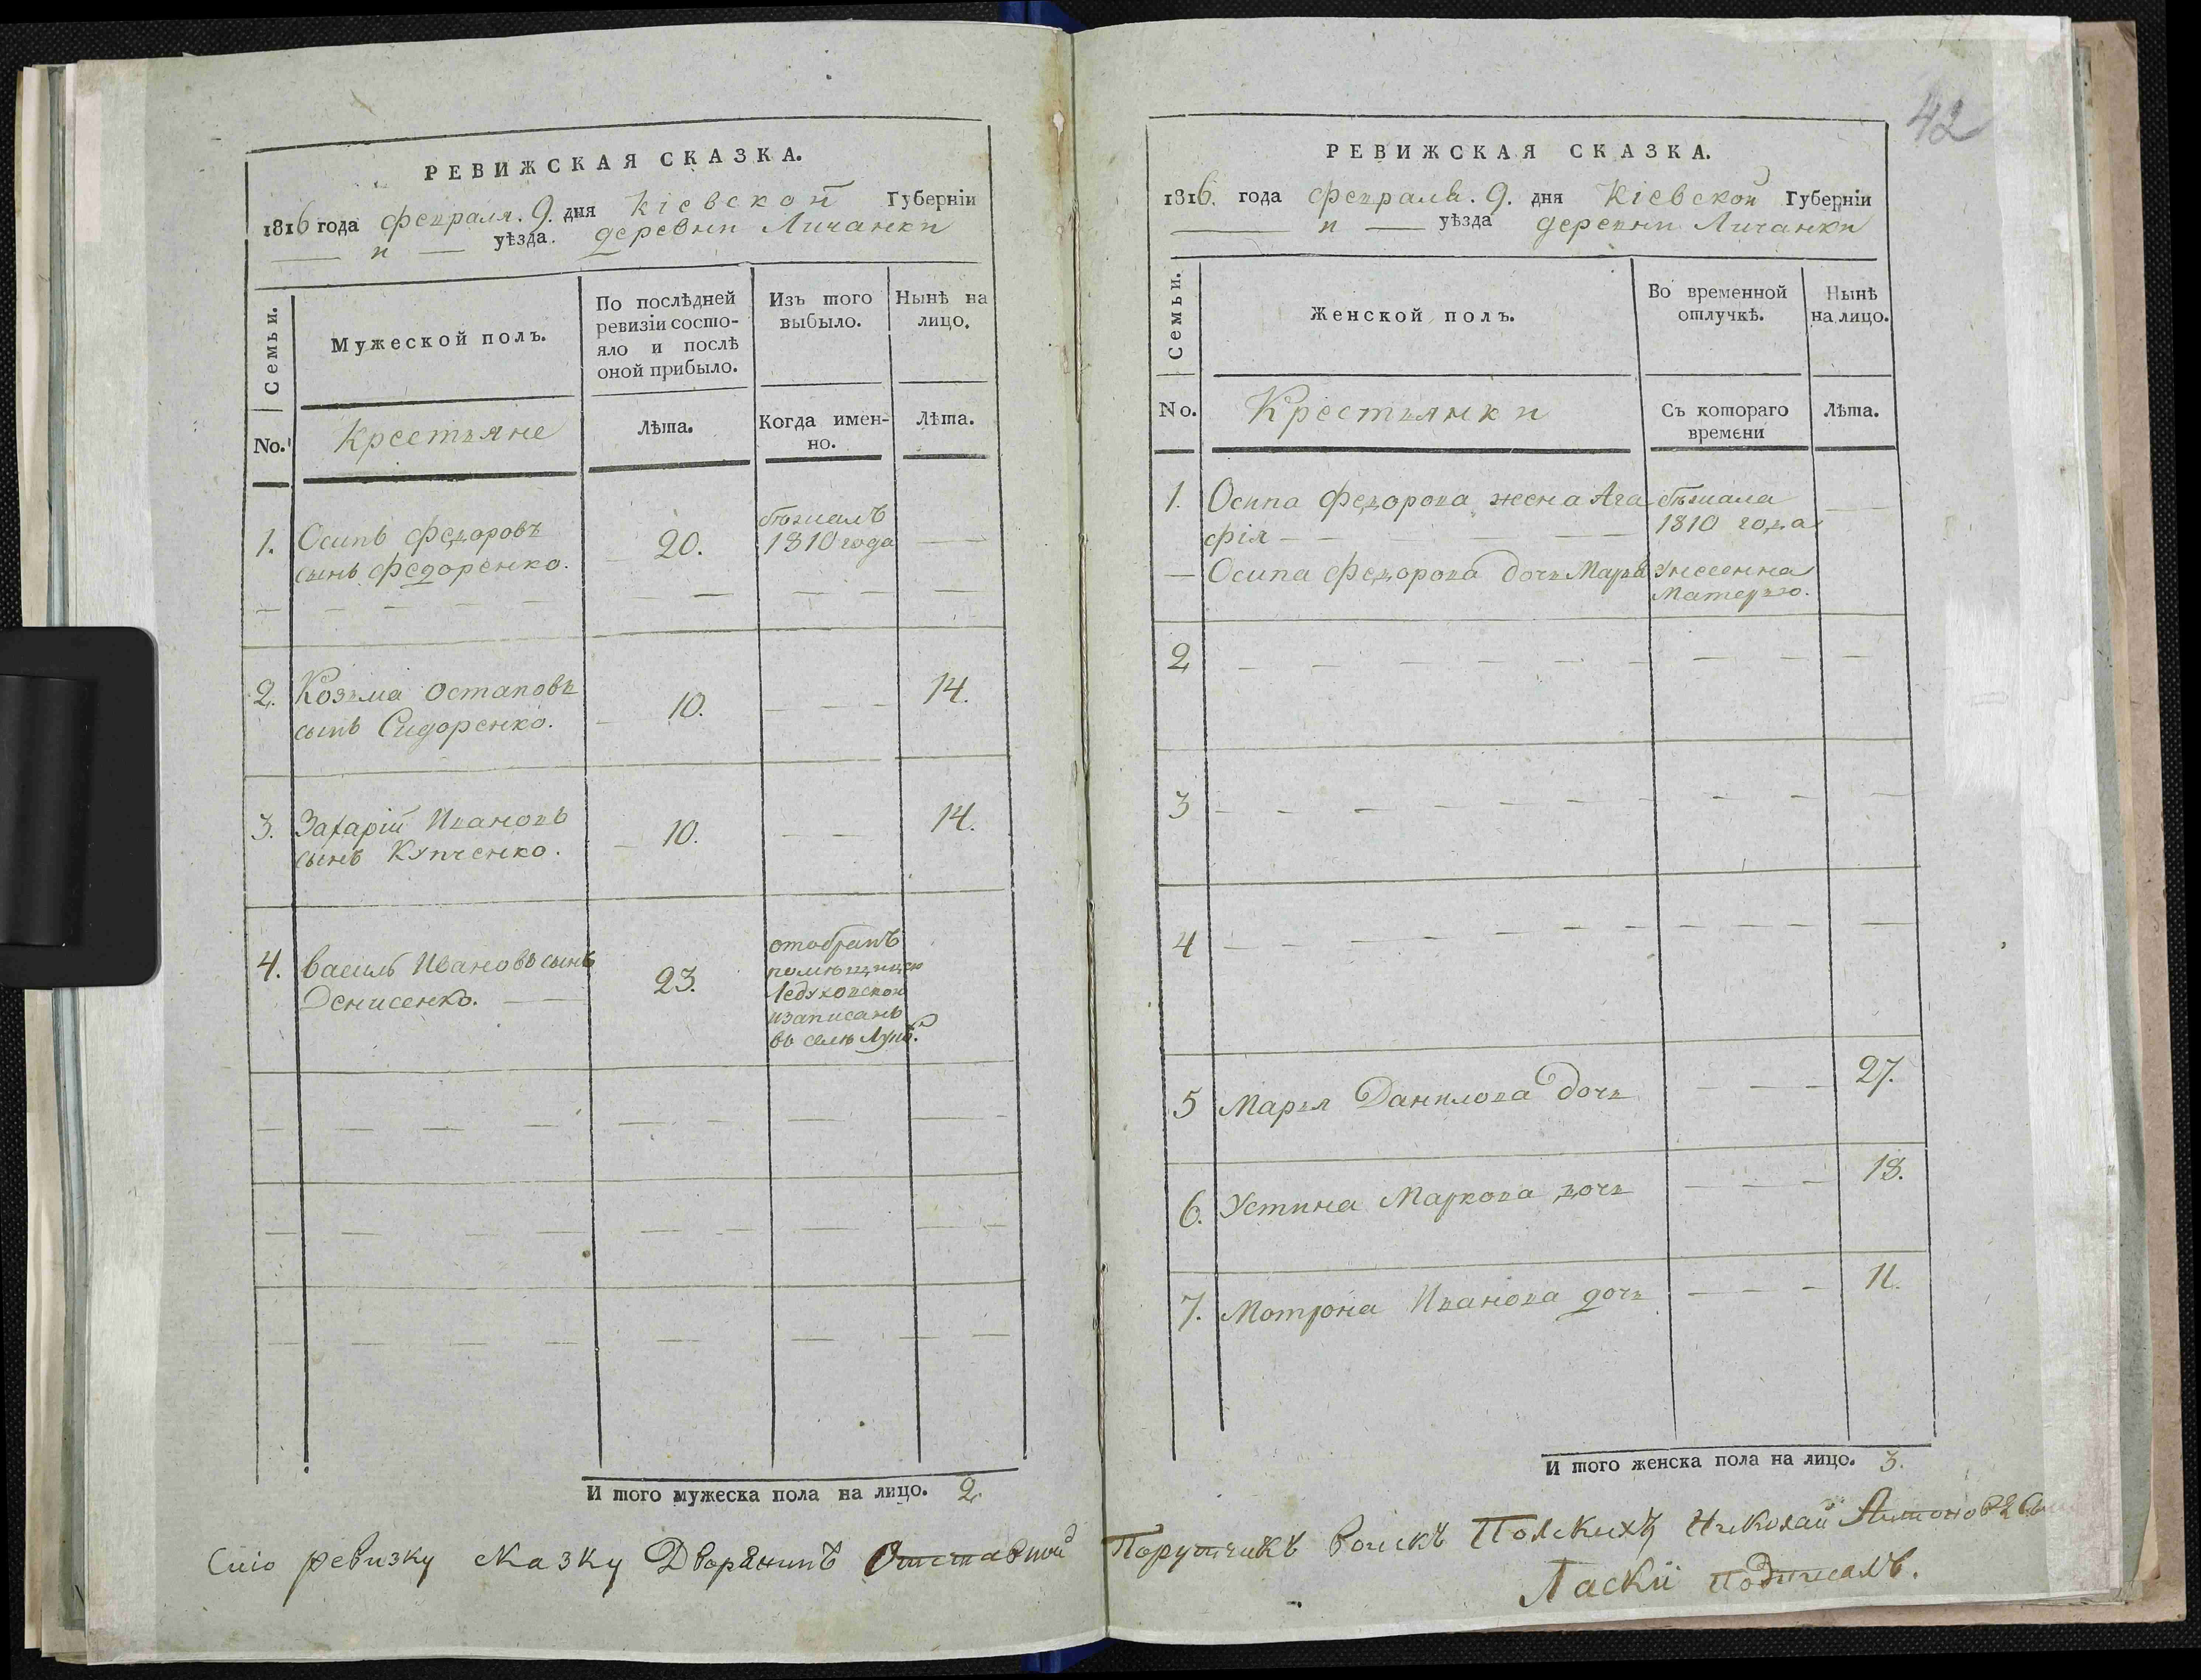 РЕВИЖСКАЯ СКАЗКА.
1816 года февраля. 9. дня Кіевской Губерніи
— и — уѣзда. деревни Личанки
Семьи.
Мужеской полъ.
По послѣдней
ревизіи состо-
яло и послѣ
оной прибыло.
Изъ того
выбыло.
Нынѣ на
лицо.
No.
Крестьяне
Лѣта.
Когда имен-
но.
Лѣта.
1. Осипъ Федоровъ
сынъ Федоренко.
20.
бѣжалъ
1810 года
2. Козьма Остаповъ
сынъ Сидоренко.
10.
14.
3. Захарій Ивановъ
сынъ Купченко.
10.
14.
4. Василь Ивановъ сынъ
Денисенко.
23.
отобранъ
помѣщицею
Ледуховскою
изаписанъ
въ селѣ
И того мужеска пола на лицо. 2.
42
РЕВИЖСКАЯ СКАЗКА.
1816. года февраля. 9. дня Кіевской Губерніи
— и — уѣзда деревни Личанки
Семьи.
Женской полъ.
Во временной
отлучкѣ.
Нынѣ
на лицо.
No.
Крестьянки
Съ котораго
времени
Лѣта.
1. Осипа Федорова жена Ага
фія
бѣжала
1810 года
— Осипа Федорова дочь Марья
унесенна
матерью.
2
3
4
5 Марья Данилова дочь
27.
6. Устина Маркова дочь
18.
7. Мотрона Иванова дочь
11.
И того женска пола на лицо. 3.
Сию ревизку сказку Дворянинъ Отставной Порутчикъ Воискъ Полскихъ Николай Антоновъ
Ласкій подписалъ.